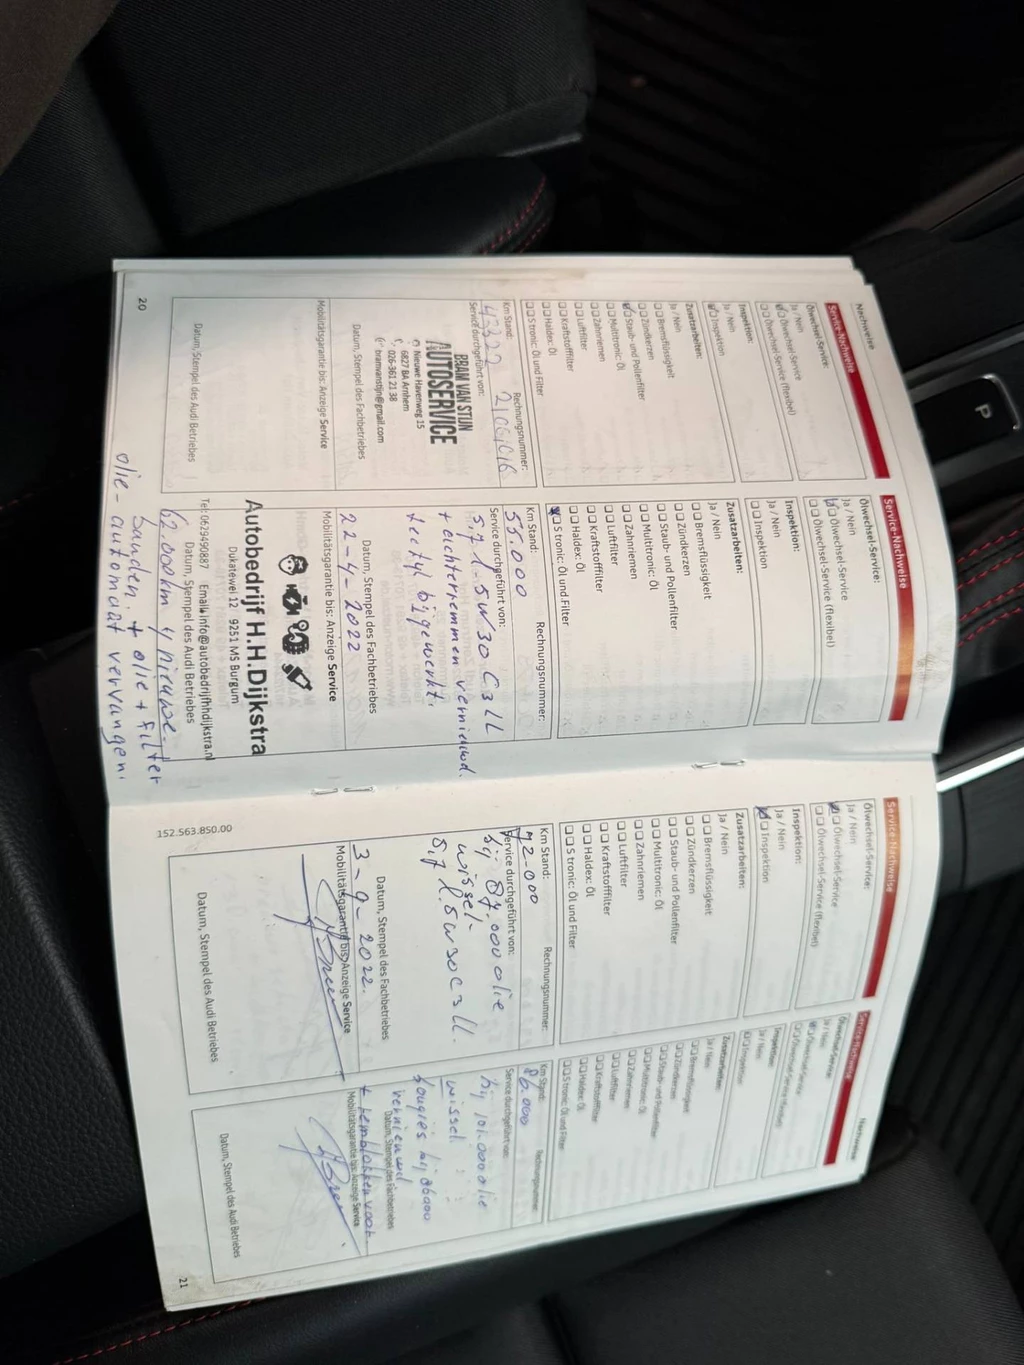 Nachweise
Service-Nachweise
Ölwechsel-Service:
Ja / Nein
Ölwechsel-Service
Ölwechsel-Service (flexibel)
Inspektion:
Ja / Nein
Inspektion
Zusatzarbeiten:
Ja / Nein
Bremsflüssigkeit
Zündkerzen
Staub- und Pollenfilter
Multitronic: Öl
Zahnriemen
Luftfilter
Kraftstofffilter
Haldex: Öl
S tronic: Öl und Filter
Km Stand: Rechnungsnummer:
43322 2106106
Service durchgeführt von:
BRAM VAN STIJN
AUTOSERVICE
Nieuwe Havenweg 15
6827 BA Arnhem
026-361 21 38
bramvanstijn@gmail.com
Datum, Stempel des Fachbetriebes
Mobilitätsgarantie bis: Anzeige Service
Datum, Stempel des Audi Betriebes
20
Service-Nachweise
Ölwechsel-Service:
Ja / Nein
Ölwechsel-Service
Ölwechsel-Service (flexibel)
Inspektion:
Ja / Nein
Inspektion
Zusatzarbeiten:
Ja / Nein
Bremsflüssigkeit
Zündkerzen
Staub- und Pollenfilter
Multitronic: Öl
Zahnriemen
Luftfilter
Kraftstofffilter
Haldex: Öl
S tronic: Öl und Filter
Km Stand: Rechnungsnummer:
55.000
Service durchgeführt von:
5,7 l - 5W30 C3 LL
+ achterremmen vernieuwd.
tectyl bijgewerkt.
Datum, Stempel des Fachbetriebes
22-4-2022
Mobilitätsgarantie bis: Anzeige Service
Autobedrijf H.H.Dijkstra
Dukatewei 12 9251 MS Burgum
Tel: 0629490887 Email: info@autobedrijfhhdijkstra.nl
Datum, Stempel des Audi Betriebes
62.000km 4 nieuwe
banden. + olie + filter
olie-automaat vervangen.
Service-Nachweise
Ölwechsel-Service:
Ja / Nein
Ölwechsel-Service
Ölwechsel-Service (flexibel)
Inspektion:
Ja / Nein
Inspektion
Zusatzarbeiten:
Ja / Nein
Bremsflüssigkeit
Zündkerzen
Staub- und Pollenfilter
Multitronic: Öl
Zahnriemen
Luftfilter
Kraftstofffilter
Haldex: Öl
S tronic: Öl und Filter
Km Stand: Rechnungsnummer:
72-000
Service durchgeführt von:
bij 87.000 olie
wissel-
5,7 l. 5W30 C3 LL.
Datum, Stempel des Fachbetriebes
3-9-2022.
Mobilitätsgarantie bis: Anzeige Service
Datum, Stempel des Audi Betriebes
152.563.850.00
Nachweise
Service-Nachweise
Ölwechsel-Service:
Ja / Nein
Ölwechsel-Service
Ölwechsel-Service (flexibel)
Inspektion:
Ja / Nein
Inspektion
Zusatzarbeiten:
Ja / Nein
Bremsflüssigkeit
Zündkerzen
Staub- und Pollenfilter
Multitronic: Öl
Zahnriemen
Luftfilter
Kraftstofffilter
Haldex: Öl
S tronic: Öl und Filter
Km Stand: Rechnungsnummer:
86.000
Service durchgeführt von:
bij 101.000 olie
wissel
bougies bij 86000
vernieuwd
Datum, Stempel des Fachbetriebes
+ remblokken voor.
Mobilitätsgarantie bis: Anzeige Service
Datum, Stempel des Audi Betriebes
21
P